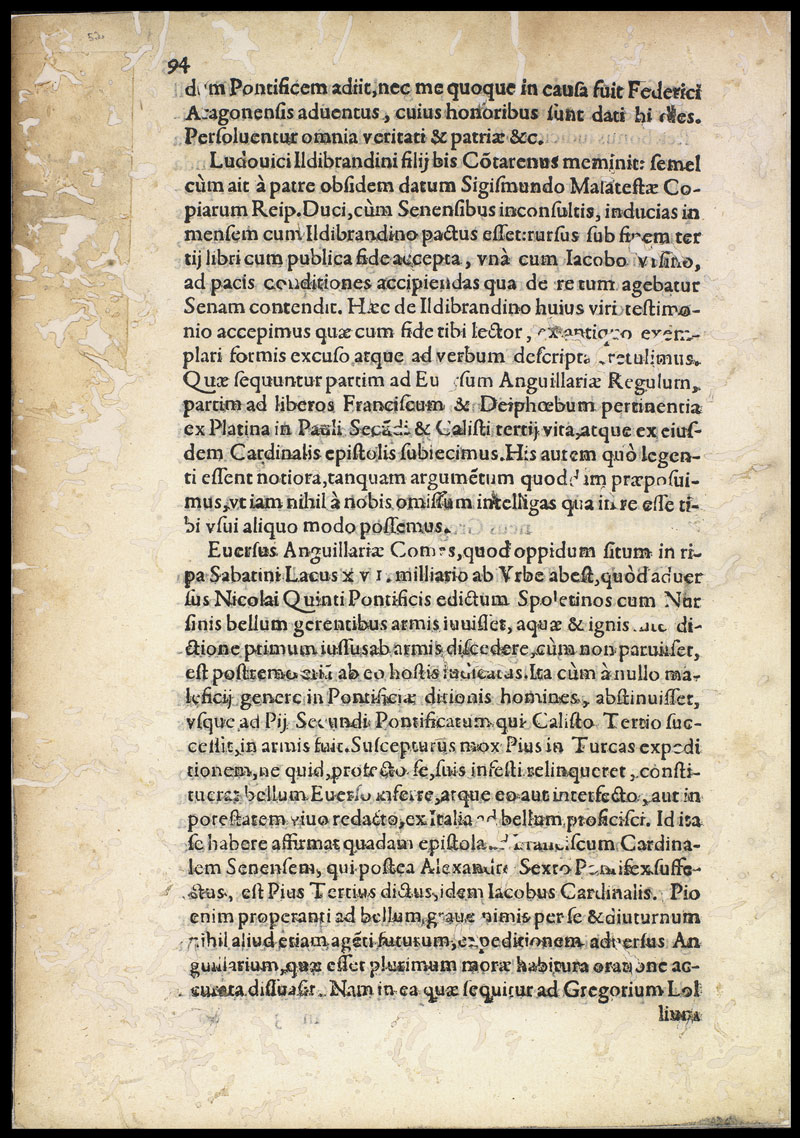 52.
94
Pontificem adiit, nec me quoque in cauſa fuit Federici
Aragonenſis aduentus, cuius honoribus ſunt dati hi dies.
Perſoluentur omnia veritati & patriæ &c.
Ludouici Ildibrandini filij bis Cõtarenus meminit: ſemel
cùm ait à patre obſidem datum Sigiſmundo Malateſtæ Co-
piarum Reip. Duci, cùm Senenſibus inconſultis, inducias in
menſem cum Ildibrandino pactus eſſet: rurſus ſub finem ter
tij libri cum publica fide accepta, vnà cum Iacobo
ad pacis conditiones accipiendas qua de re tum agebatur
Senam contendit. Hæc de Ildibrandino huius viri teſtimo-
nio accepimus quæ cum fide tibi lector, ex antiquo exem-
plari formis excuſo atque ad verbum deſcripta retulimus.
Quæ ſequuntur partim ad Anguillariæ Regulum,
partim ad liberos Franciſcum & Deiphœbum pertinentia
ex Platina in Pauli Secũdi & Caliſti tertij vita, atque ex eiuſ-
dem Cardinalis epiſtolis ſubiecimus. His autem quò legen-
ti eſſent notiora, tanquam argumẽtum quoddam præpoſui-
mus, vt iam nihil à nobis omiſſum intelligas qua in re eſſe ti-
bi vſui aliquo modo poſſemus.
Euerſus Anguillariæ Comes, quod oppidum ſitum in ri-
pa Sabatini Lacus XVI. milliario ab Vrbe abeſt, quòd aduer
ſus Nicolai Quinti Pontificis edictum Spoletinos cum Nur
ſinis bellum gerentibus armis iuuiſſet, aquæ & ignis di-
ctione primum iuſſus ab armis diſcedere, cùm non paruiſſet,
eſt poſtremo etiã ab eo hoſtis iudicatus. Ita cùm à nullo ma-
leficij genere in Pontificiæ ditionis homines, abſtinuiſſet,
vſque ad Pij Secundi Pontificatum qui Caliſto Tertio ſuc-
ceſſit, in armis fuit. Suſcepturus mox Pius in Turcas expedi
tionem, ne quid, profecto ſe, ſuis infeſti relinqueret, conſti-
tuerat bellum Euerſo inferre, atque eo aut interfecto, aut in
poteſtatem viuo redacto, ex Italia ad bellum proficiſci. Id ita
ſe habere affirmat quadam epiſtola ad Franciſcum Cardina-
lem Senenſem, qui poſtea Alexandro Sexto Pontifex ſuffe-
ctus, eſt Pius Tertius dictus, idem Iacobus Cardinalis. Pio
enim properanti ad bellum, graue nimis per ſe & diuturnum
nihil aliud etiam agẽti futurum, expeditionem aduerſus An
guillarium, quæ eſſet plurimum moræ habitura oratione ac-
curata diſſuaſit. Nam in ea quæ ſequitur ad Gregorium Lol